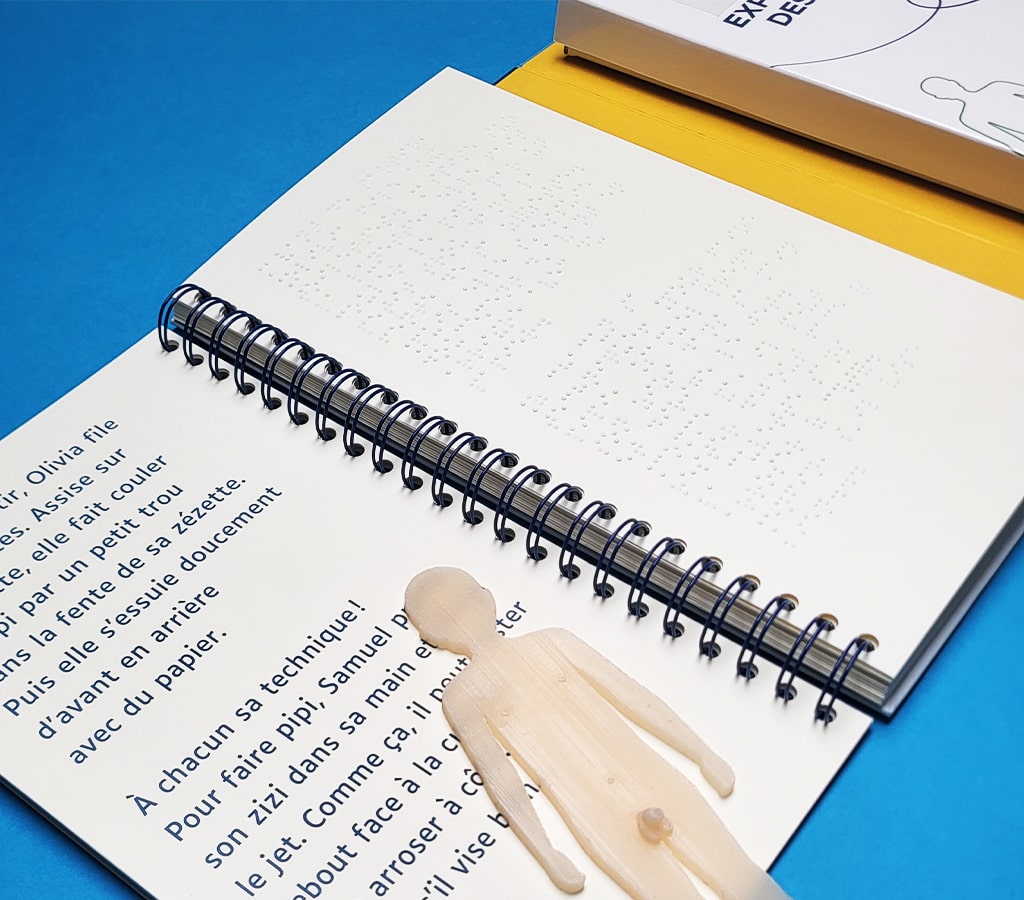 EXP
DES
tir, Olivia file
tes. Assise sur
tte, elle fait couler
pi par un petit trou
ans la fente de sa zézette.
Puis elle s'essuie doucement
d'avant en arrière
avec du papier.
À chacun sa technique !
Pour faire pipi, Samuel p
son zizi dans sa main et ster
le jet. Comme ça, il peu
ebout face à la cu
arroser à cô
'il vise b n